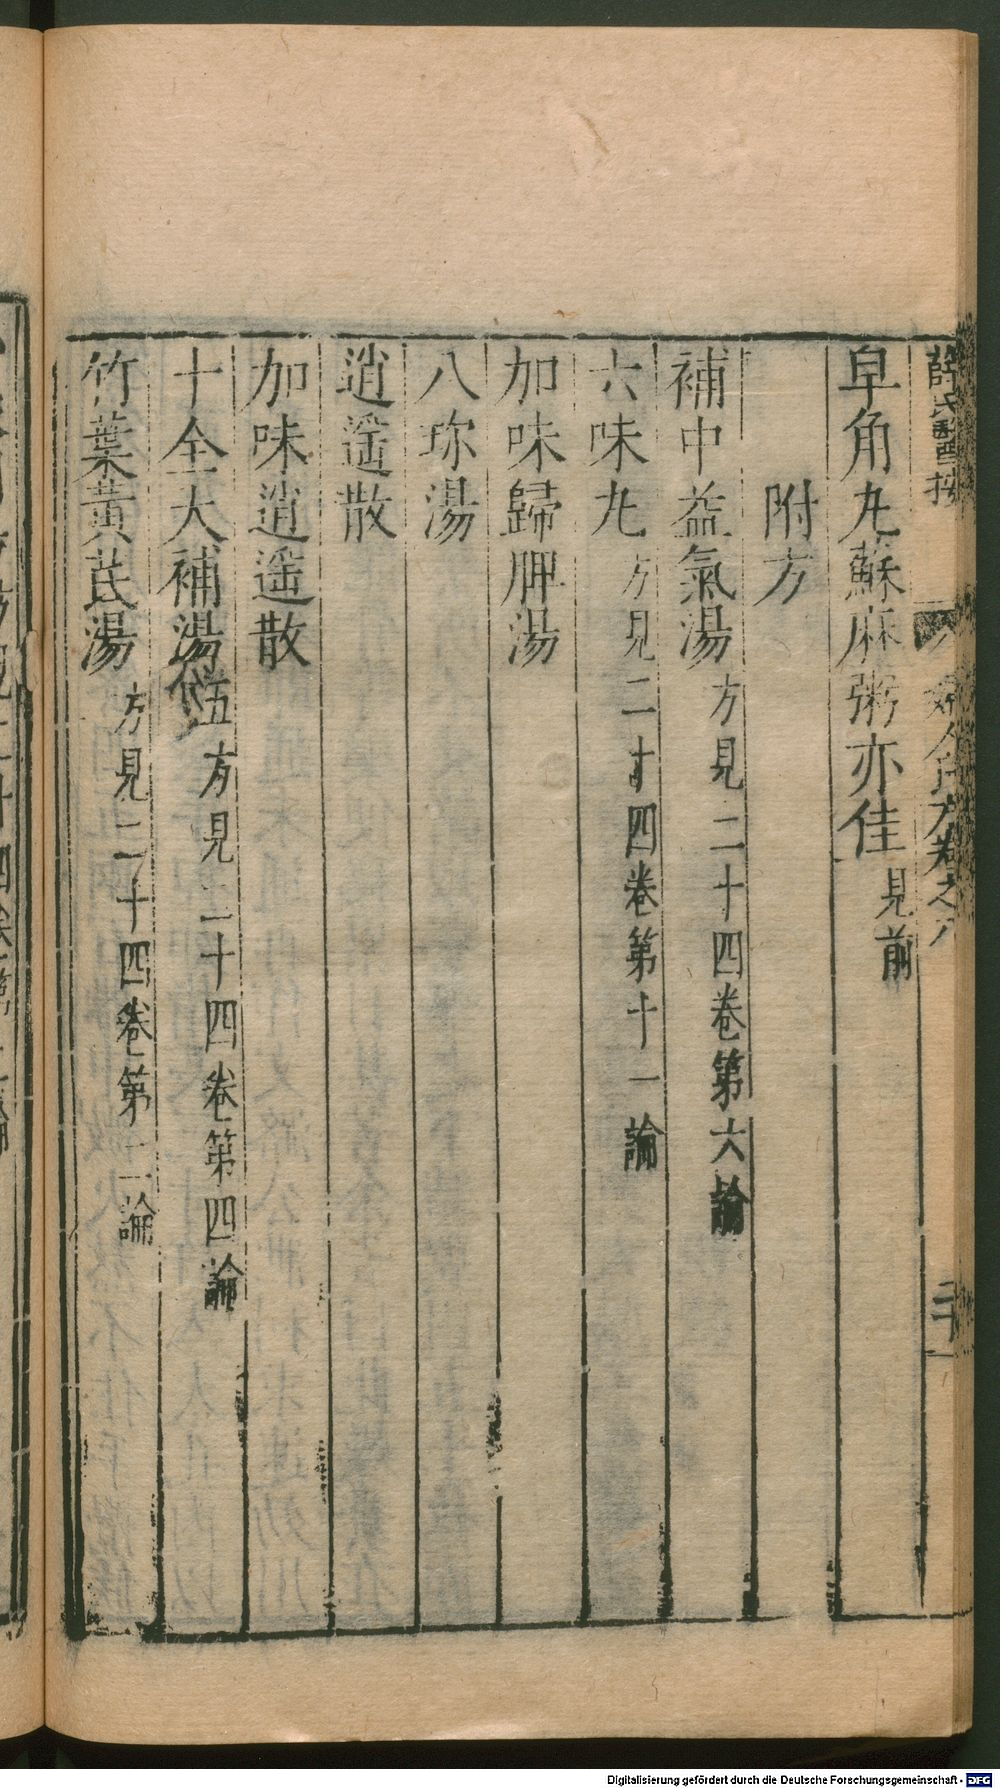 薛氏醫按
婦人良方卷之八
皁角丸蘇麻粥亦佳見前
附方
補中益氣湯方見二十四卷第六論
六味丸方見二十四卷第十一論
加味歸脾湯
八珎湯
逍遥散
加味逍遥散
十全大補湯 五方見二十四卷第四論
竹葉黃芪湯方見二十四卷第二論
Digitalisierung gefördert durch die Deutsche Forschungsgemeinschaft - DFG